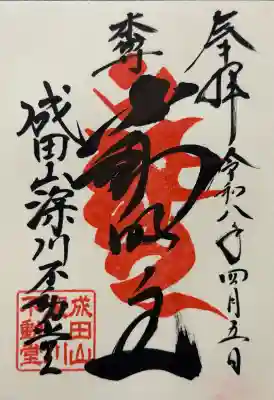 奉拝
令和八年四月五日
本尊
不動明王
成田山深川不動堂
成田山
不動堂